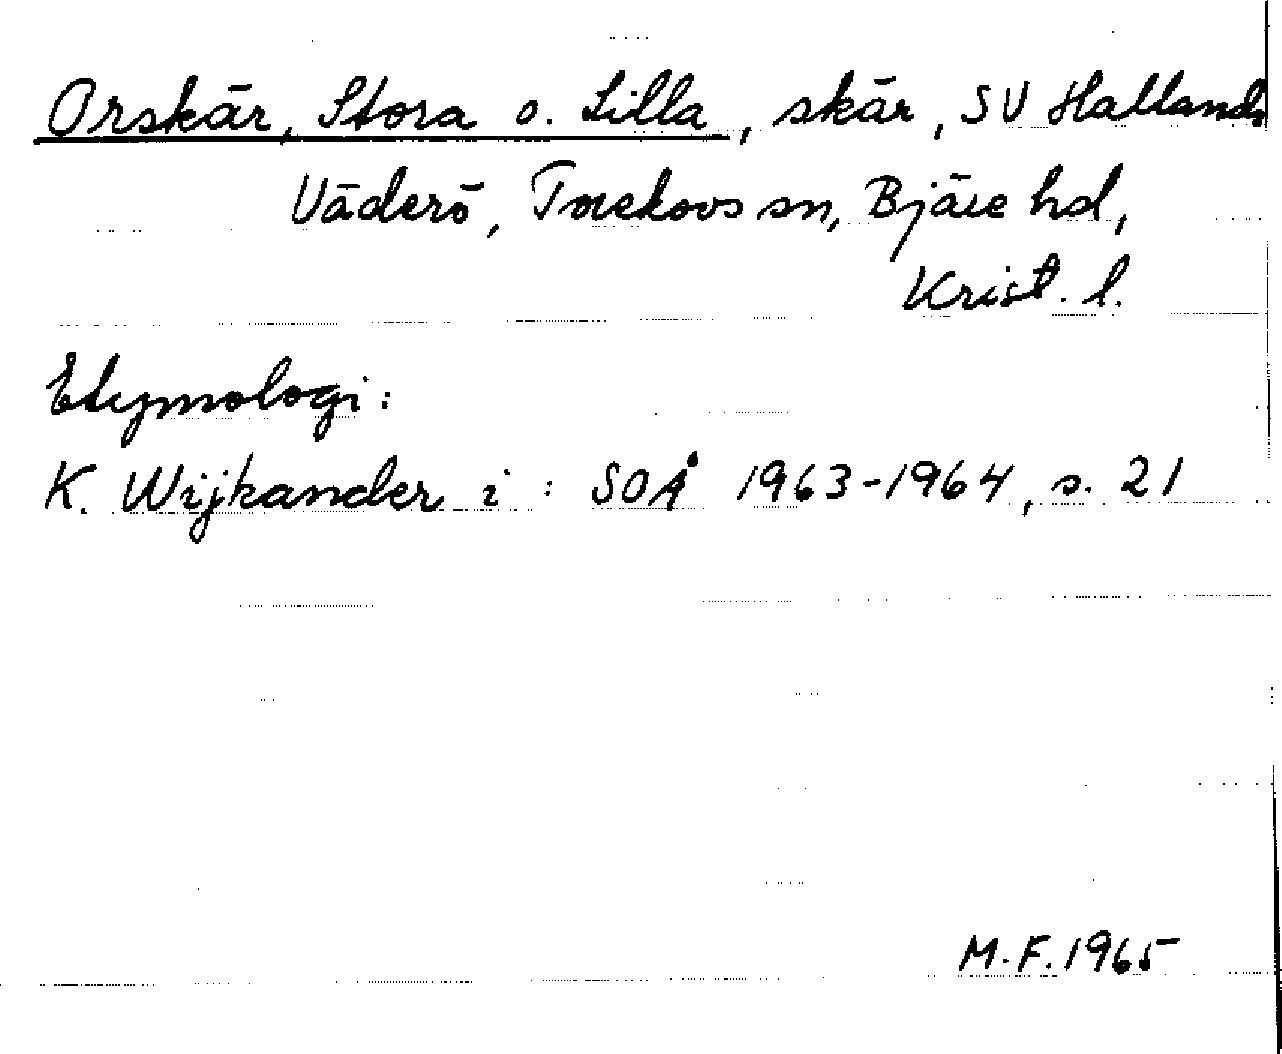 Orskär, Stora o. Lilla, skär, SV Hallands
Väderö, Torekovs sn, Bjäre hd,
Krist. l.
Etymologi:
K. Wijkander i: SOÅ 1963-1964, s. 21
M.F. 1965